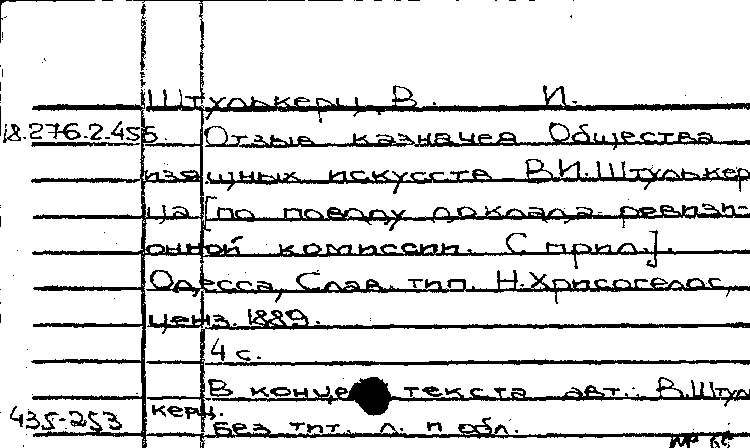 Штулькерц, В. И.
18.276.2.455. Отзыв казначея Общества
изящных искусств В.И.Штулькер-
ца [по поводу доклада ревизи-
онной комиссии. С прил.].
Одесса, Слав. тип. Н.Хрисогелос,
ценз. 1889.
4 с.
В конце текста авт.: В.Штуль-
435-253 керц.
Без тит. л. и обл.